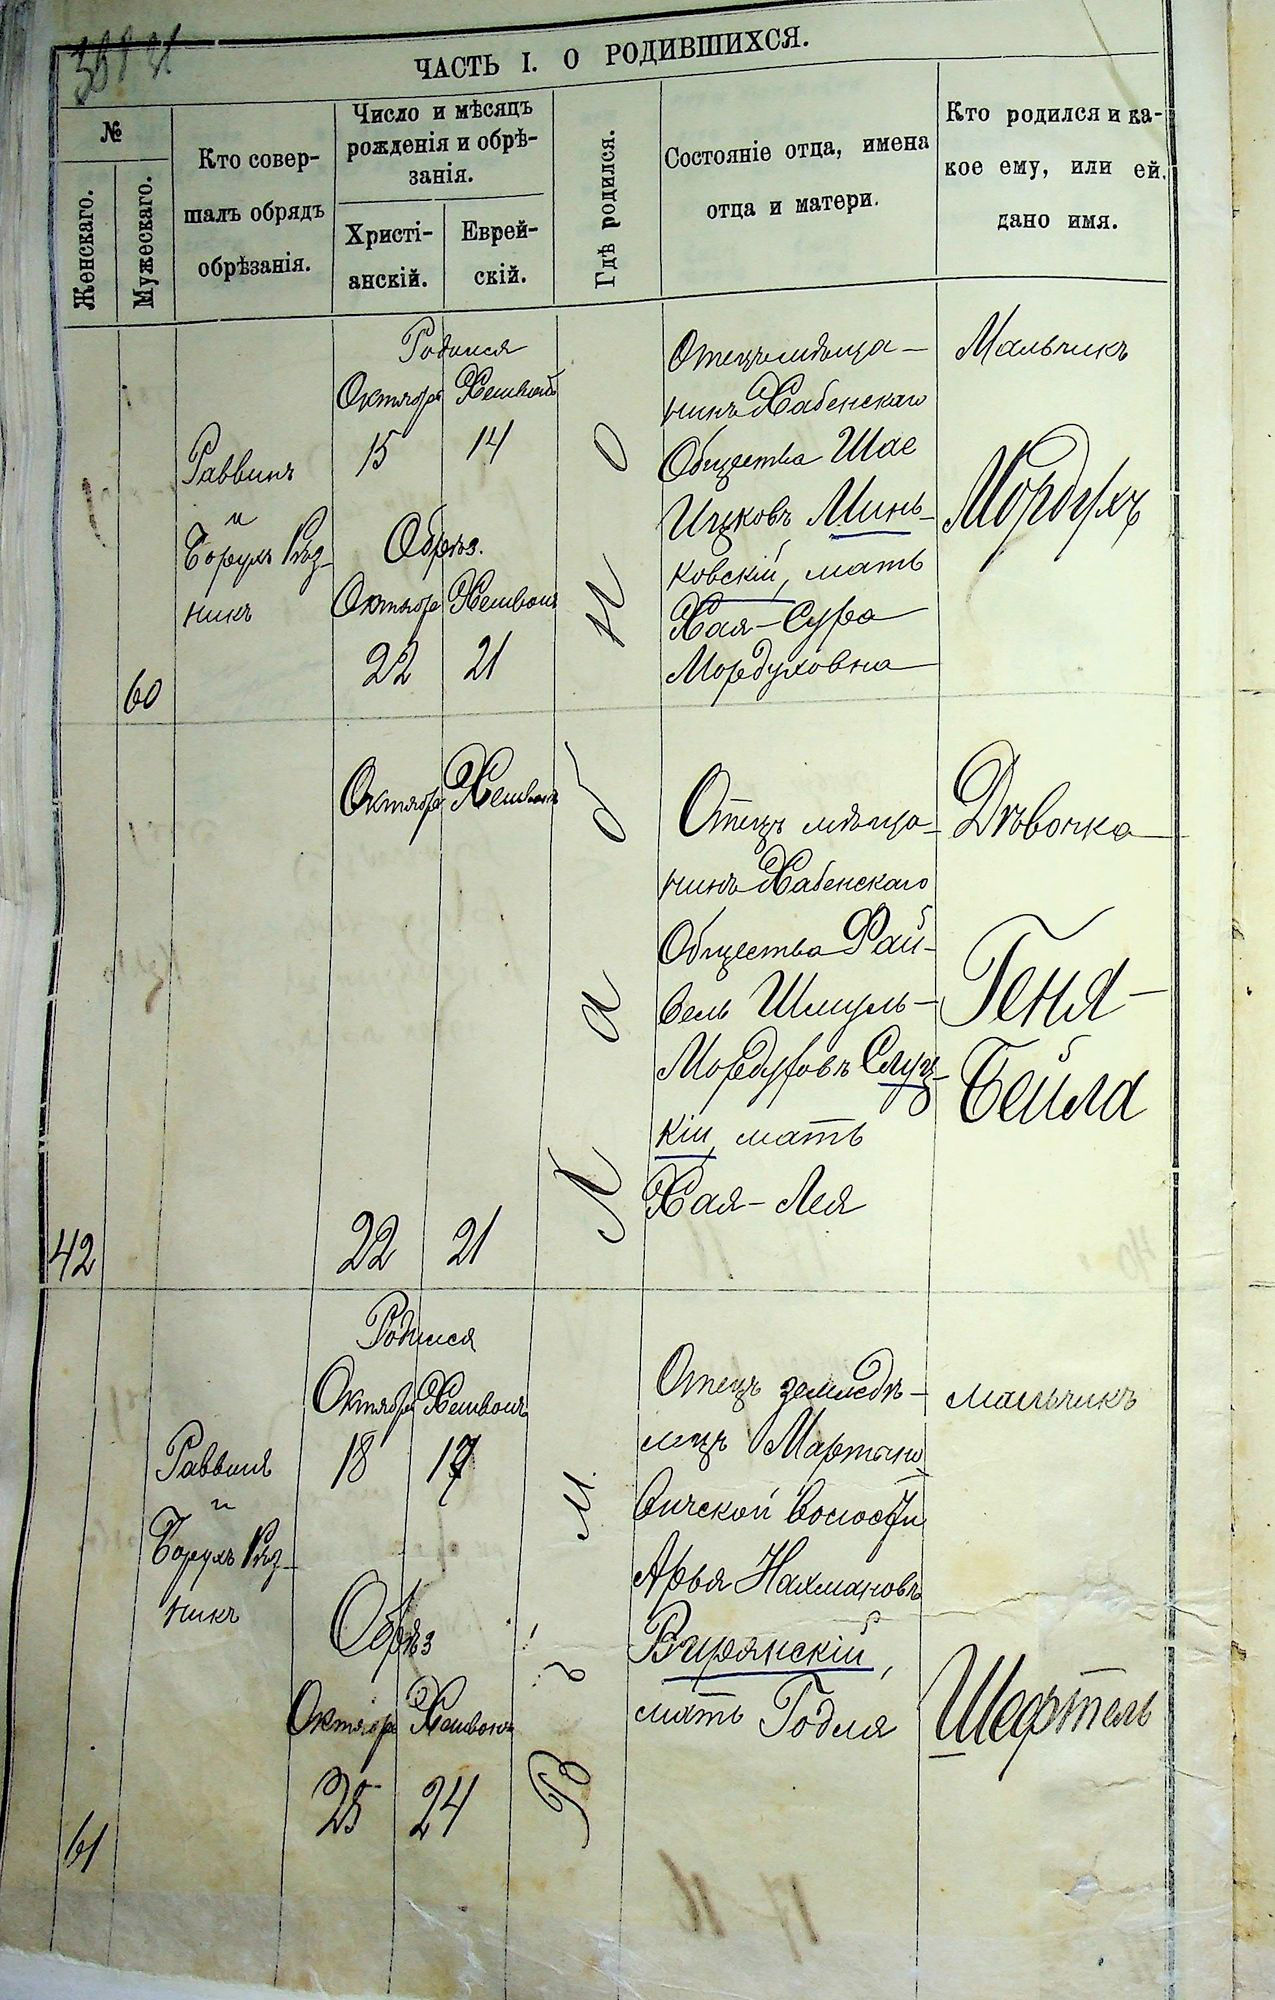 ЧАСТЬ I. О РОДИВШИХСЯ.
№
Женскаго.
Мужескаго.
Кто совер-
шалъ обрядъ
обрѣзанія.
Число и мѣсяцъ
рожденія и обрѣ-
занія.
Христі-
анскій.
Еврей-
скій.
Гдѣ родился.
Состояніе отца, имена
отца и матери.
Кто родился и ка-
кое ему, или ей,
дано имя.
60
Раввинъ
и
Борухъ Рѣз-
никъ
Родился
Октября Хешвонъ
15 14
Обрѣз.
Октября Хешвонъ
22 21
Отецъ мѣща-
нинъ Хабенскаго
Общества Шае
Ицковъ Минь-
ковскій, мать
Хая-Сура
Мордуховна
Мальчикъ
Мордухъ
Въ м. Хабно
42
Октября Хешвонъ
22 21
Отецъ мѣща-
нинъ Хабенскаго
Общества Фай-
вель Шмуль-
Мордуховъ Слуц-
кій, мать
Хая-Лея
Дѣвочка
Геня-
Бейла
61
Раввинъ
и
Борухъ Рѣз-
никъ
Родился
Октября Хешвонъ
18 17
Обрѣз
Октября Хешвонъ
25 24
Отецъ земледѣ-
лецъ Мартыно-
вичской волости
Арья Нахмановъ
мать Годля
мальчикъ
Шефтель